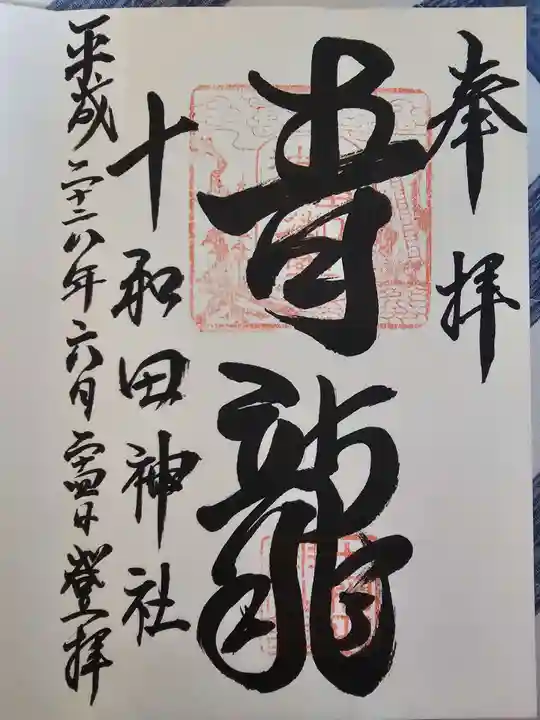 奉拝
青龍
十和田神社
平成二十八年六月二十四日登拝